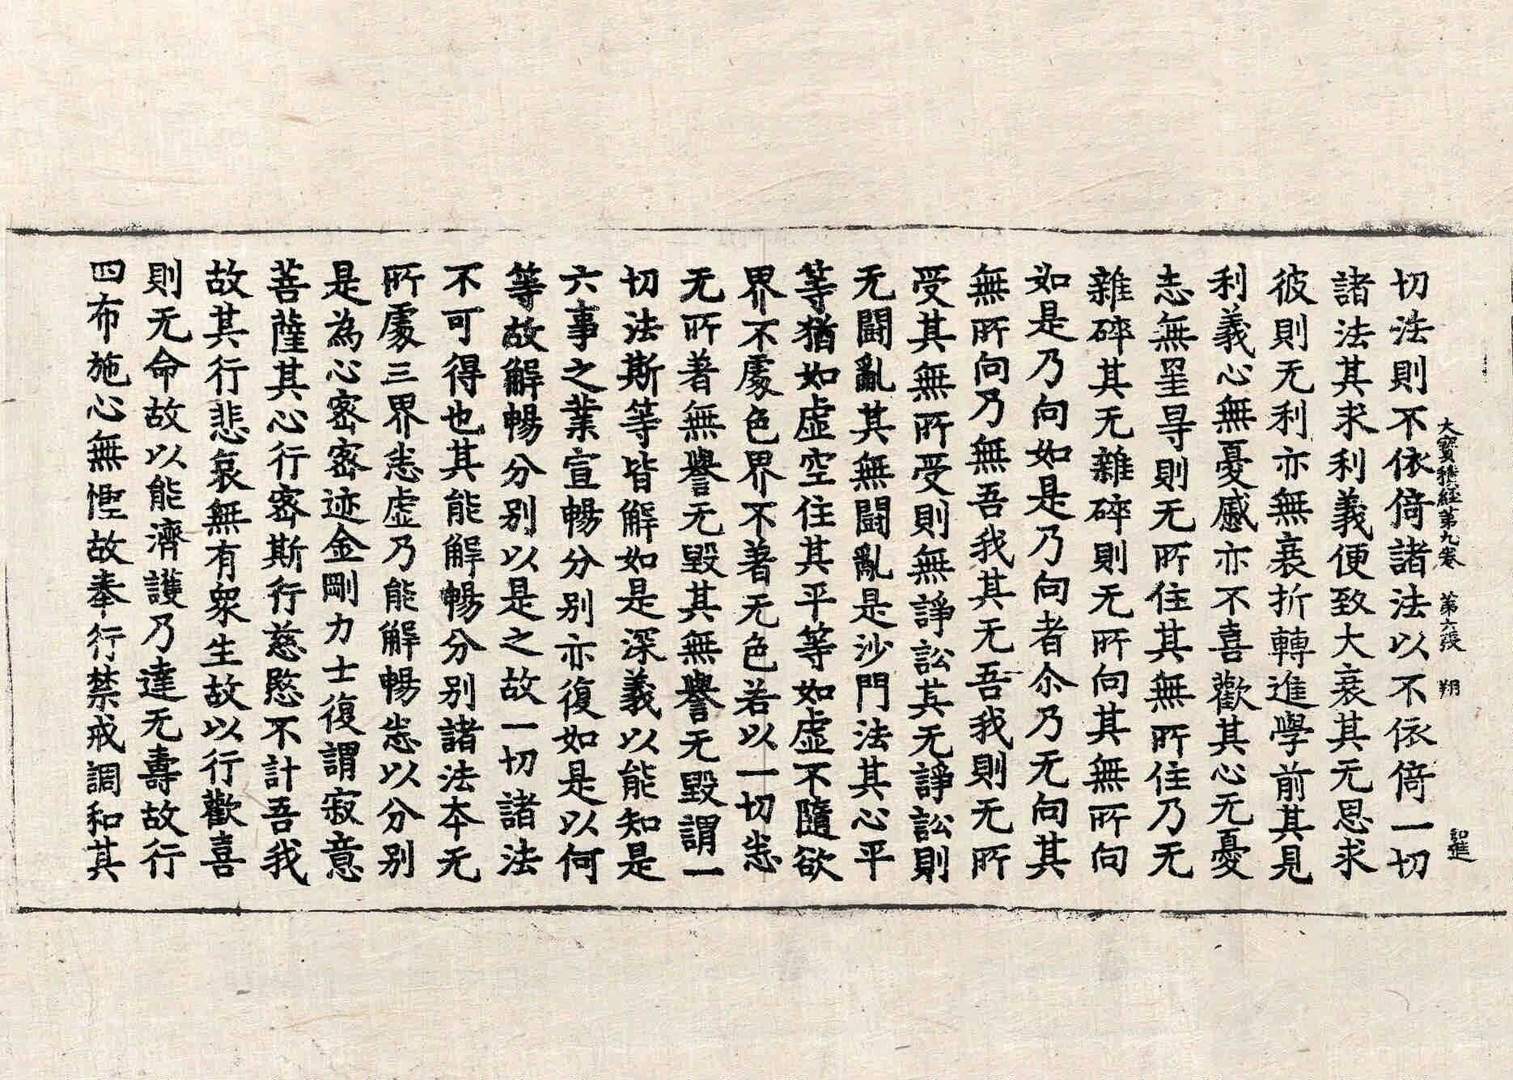 大寶積經第九卷 第六張 翔
切法則不依倚諸法以不依倚一切
諸法其求利義便致大衰其无恩求
彼則无利亦無衰折轉進學前其見
利義心無憂慼亦不喜歡其心无憂
志無罣㝵則无所住其無所住乃无
雜碎其无雜碎則无所向其無所向
如是乃向如是乃向者尒乃无向其
無所向乃無吾我其无吾我則无所
受其無所受則無諍訟其无諍訟則
无鬪亂其無鬪亂是沙門法其心平
等猶如虛空住其平等如虛不隨欲
界不處色界不著无色若以一切悉
无所著無譽无毀其無譽无毀謂一
切法斯等皆解如是深義以能知是
六事之業宣暢分別亦復如是以何
等故解暢分別以是之故一切諸法
不可得也其能解暢分別諸法本无
所處三界悉虛乃能解暢悉以分別
是為心密密迹金剛力士復謂寂意
菩薩其心行密斯行慈愍不計吾我
故其行悲哀無有眾生故以行歡喜
則无命故以能濟護乃達无壽故行
四布施心無慳故奉行禁戒調和其